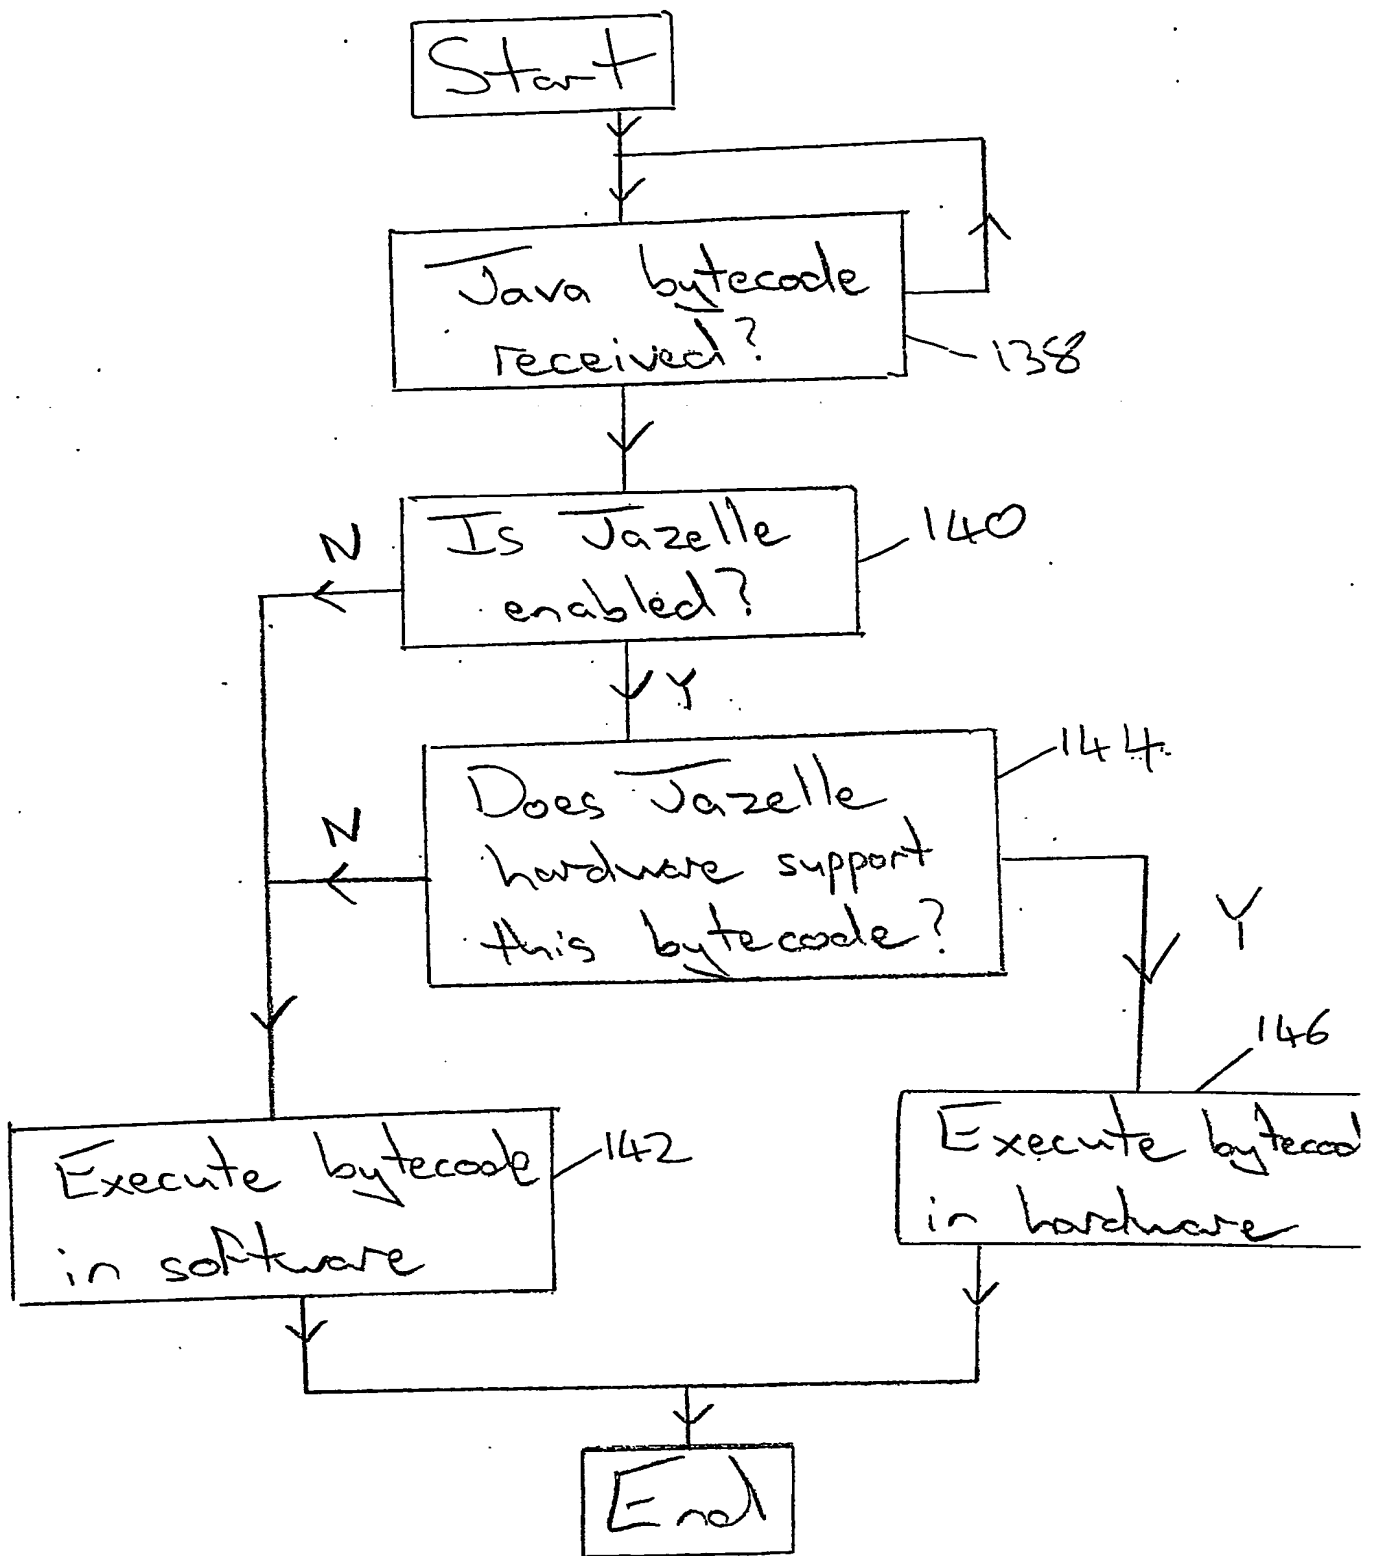 Start
Java bytecode
received?
138
Is Jazelle
enabled?
140
N
Y
Does Jazelle
hardware support
this bytecode?
144
N
Y
146
Execute bytecode
in software
142
Execute bytecod
in hardware
End